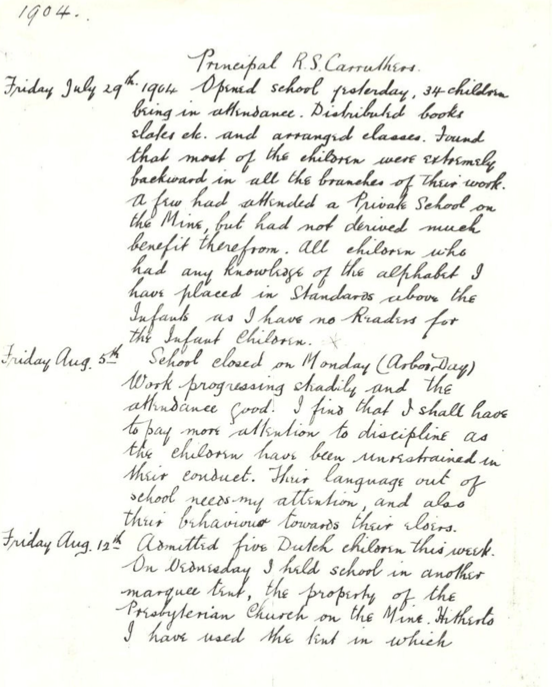 1904.
Principal R.S. Carruthers.
Friday July 29th 1904 Opened school yesterday, 34 children
being in attendance. Distributed books
slates etc. and arranged classes. Found
that most of the children were extremely
backward in all the branches of their work.
A few had attended a Private School on
the Mine, but had not derived much
benefit therefrom. All children who
had any knowledge of the alphabet I
have placed in Standards above the
Infants as I have no Readers for
the Infant Children.
Friday Aug. 5th School closed on Monday (Arbor Day)
Work progressing steadily and the
attendance good. I find that I shall have
to pay more attention to discipline as
the children have been unrestrained in
their conduct. Their language out of
school needs my attention, and also
their behaviour towards their elders.
Friday Aug. 12th Admitted five Dutch children this week.
On Wednesday I held school in another
marquee tent, the property of the
Presbyterian Church on the Mine. Hitherto
I have used the tent in which